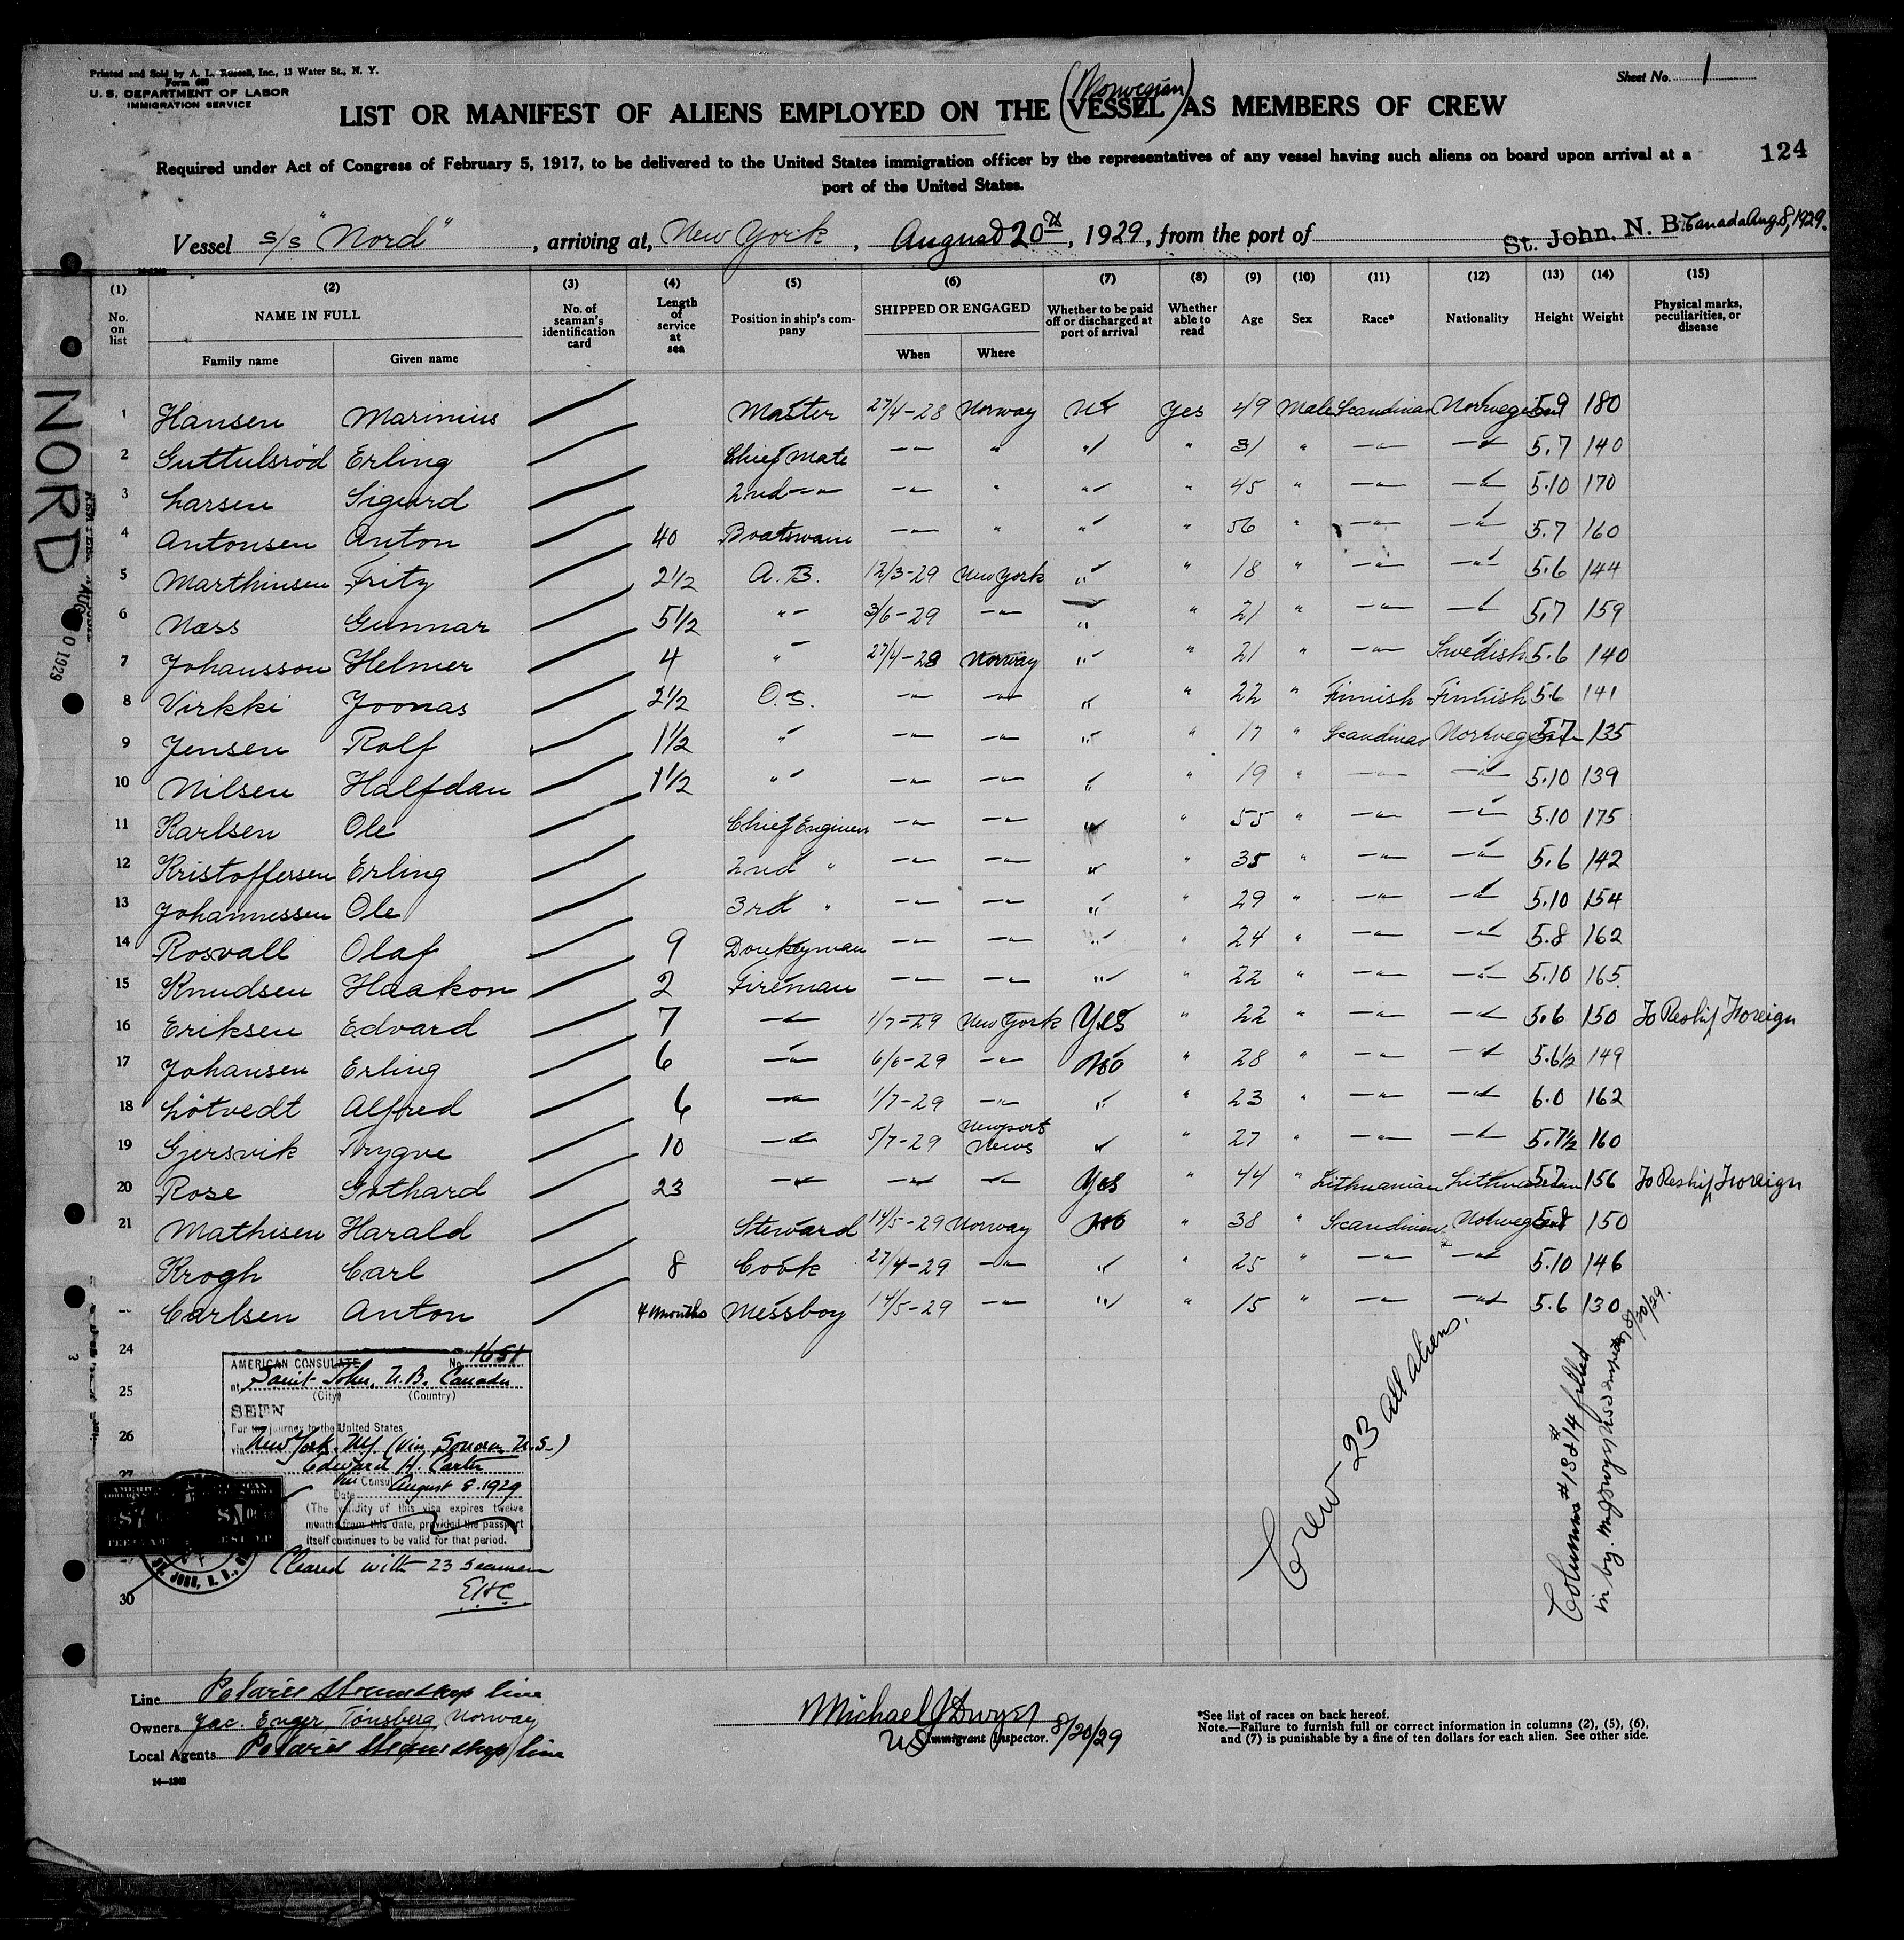 Printed and Sold by A. L. Russell, Inc., 13 Water St., N. Y.
Form 689
U. S. DEPARTMENT OF LABOR
IMMIGRATION SERVICE
Sheet No. 1
(Norwegian)
LIST OR MANIFEST OF ALIENS EMPLOYED ON THE VESSEL AS MEMBERS OF CREW
124
Required under Act of Congress of February 5, 1917, to be delivered to the United States immigration officer by the representatives of any vessel having such aliens on board upon arrival at a
port of the United States.
Vessel s/s "Nord", arriving at, New York, August 20th, 1929, from the port of St. John, N. B. Canada Aug. 8, 1929.
(1) No. on list (2) NAME IN FULL Family name Given name (3) No. of seaman's identification card (4) Length of service at sea (5) Position in ship's company (6) SHIPPED OR ENGAGED When Where (7) Whether to be paid off or discharged at port of arrival (8) Whether able to read (9) Age (10) Sex (11) Race* (12) Nationality (13) Height (14) Weight (15) Physical marks, peculiarities, or disease
NORD
1 Hansen Marinius Master 27/4-28 Norway Yes 49 Male Scandinav Norwegian 5.9 180
2 Guttulsröd Erling Chief Mate -"- " " " 31 " -"- -"- 5.7 140
3 Larsen Sigurd 2nd -"- -"- " " " 45 " -"- -"- 5.10 170
4 Antonsen Anton 40 Boatswain -"- " " " 56 " -"- -"- 5.7 160
5 Marthinsen Fritz 2 1/2 A. B. 12/3-29 New York " " 18 " -"- -"- 5.6 144
6 Næss Gunnar 5 1/2 -"- 3/6-29 -"- " " 21 " -"- -"- 5.7 159
7 Johansson Helmer 4 " 27/4-28 Norway " " 21 " -"- Swedish 5.6 140
8 Virkki Joonas 2 1/2 O. S. -"- -"- " " 22 " Finnish Finnish 5.6 141
9 Jensen Rolf 1 1/2 " -"- -"- " " 17 " Scandinav Norwegian 5.7 135
10 Nilsen Halfdan 1 1/2 " -"- -"- " " 19 " -"- -"- 5.10 139
11 Karlsen Ole Chief Engineer -"- -"- " " 55 " -"- -"- 5.10 175
12 Kristoffersen Erling 2nd " -"- -"- " " 35 " -"- -"- 5.6 142
13 Johannessen Ole 3rd " -"- -"- " " 29 " -"- -"- 5.10 154
14 Rosvall Olaf 9 Donkeyman -"- -"- " " 24 " -"- -"- 5.8 162
15 Knudsen Haakon 2 Fireman -"- -"- " " 22 " -"- -"- 5.10 165
16 Eriksen Edvard 7 -"- 1/7-29 New York Yes " 22 " -"- -"- 5.6 150 To Reship Foreign
17 Johansen Erling 6 -"- 6/6-29 -"- No " 28 " -"- -"- 5.6 1/2 149
18 Lötvedt Alfred 6 -"- 1/7-29 -"- " " 23 " -"- -"- 6.0 162
19 Gjersvik Trygve 10 -"- 5/7-29 Newport News " " 27 " -"- -"- 5.7 1/2 160
20 Rose Gothard 23 -"- -"- -"- Yes " 44 " Lithuanian Lithuanian 5.7 156 To Reship Foreign
21 Mathisen Harald Steward 14/5-29 Norway No " 38 " Scandinav Norwegian 5.8 150
Krogh Carl 8 Cook 27/4-29 -"- " " 25 " -"- -"- 5.10 146
Carlsen Anton 4 months Messboy 14/5-29 -"- " " 15 " -"- -"- 5.6 130
24
25
26
30
AMERICAN CONSULATE No. 1651
at Saint John, N.B. Canada
(City) (Country)
SEEN
For the journey to the United States
via New York, NY
Edward H. Carter
Vice Consul
Date August 8, 1929
(The validity of this visa expires twelve
months from this date, provided the passport
itself continues to be valid for that period.
ST. JOHN, N. B.
Cleared with 23 seamen
EHC
Crew 23 all aliens.
Columns #13 & #14 filled
in by 8/20/29.
Line Polaris Steamship line
Owners Jac. Enger, Tönsberg, Norway
Local Agents Polaris Steamship line
14—1240
Michael J Dwyer
US Immigrant Inspector. 8/20/29
*See list of races on back hereof.
Note.—Failure to furnish full or correct information in columns (2), (5), (6),
and (7) is punishable by a fine of ten dollars for each alien. See other side.